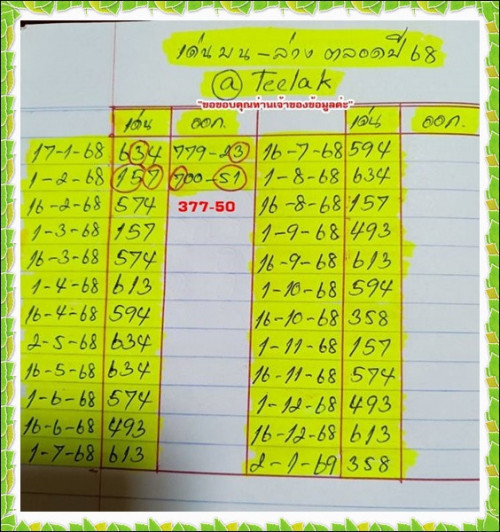 เด่นบน - ล่าง ตลอดปี 68
@ Teelak
"ขอขอบคุณท่านเจ้าของข้อมูลค่ะ"
เด่น ออก. เด่น ออก.
17-1-68 634 779-23 16-7-68 594
1-2-68 157 700-51 1-8-68 634
16-2-68 574 377-50 16-8-68 157
1-3-68 157 1-9-68 493
16-3-68 574 16-9-68 613
1-4-68 613 1-10-68 594
16-4-68 594 16-10-68 358
2-5-68 634 1-11-68 157
16-5-68 634 16-11-68 574
1-6-68 574 1-12-68 493
16-6-68 493 16-12-68 613
1-7-68 613 2-1-69 358